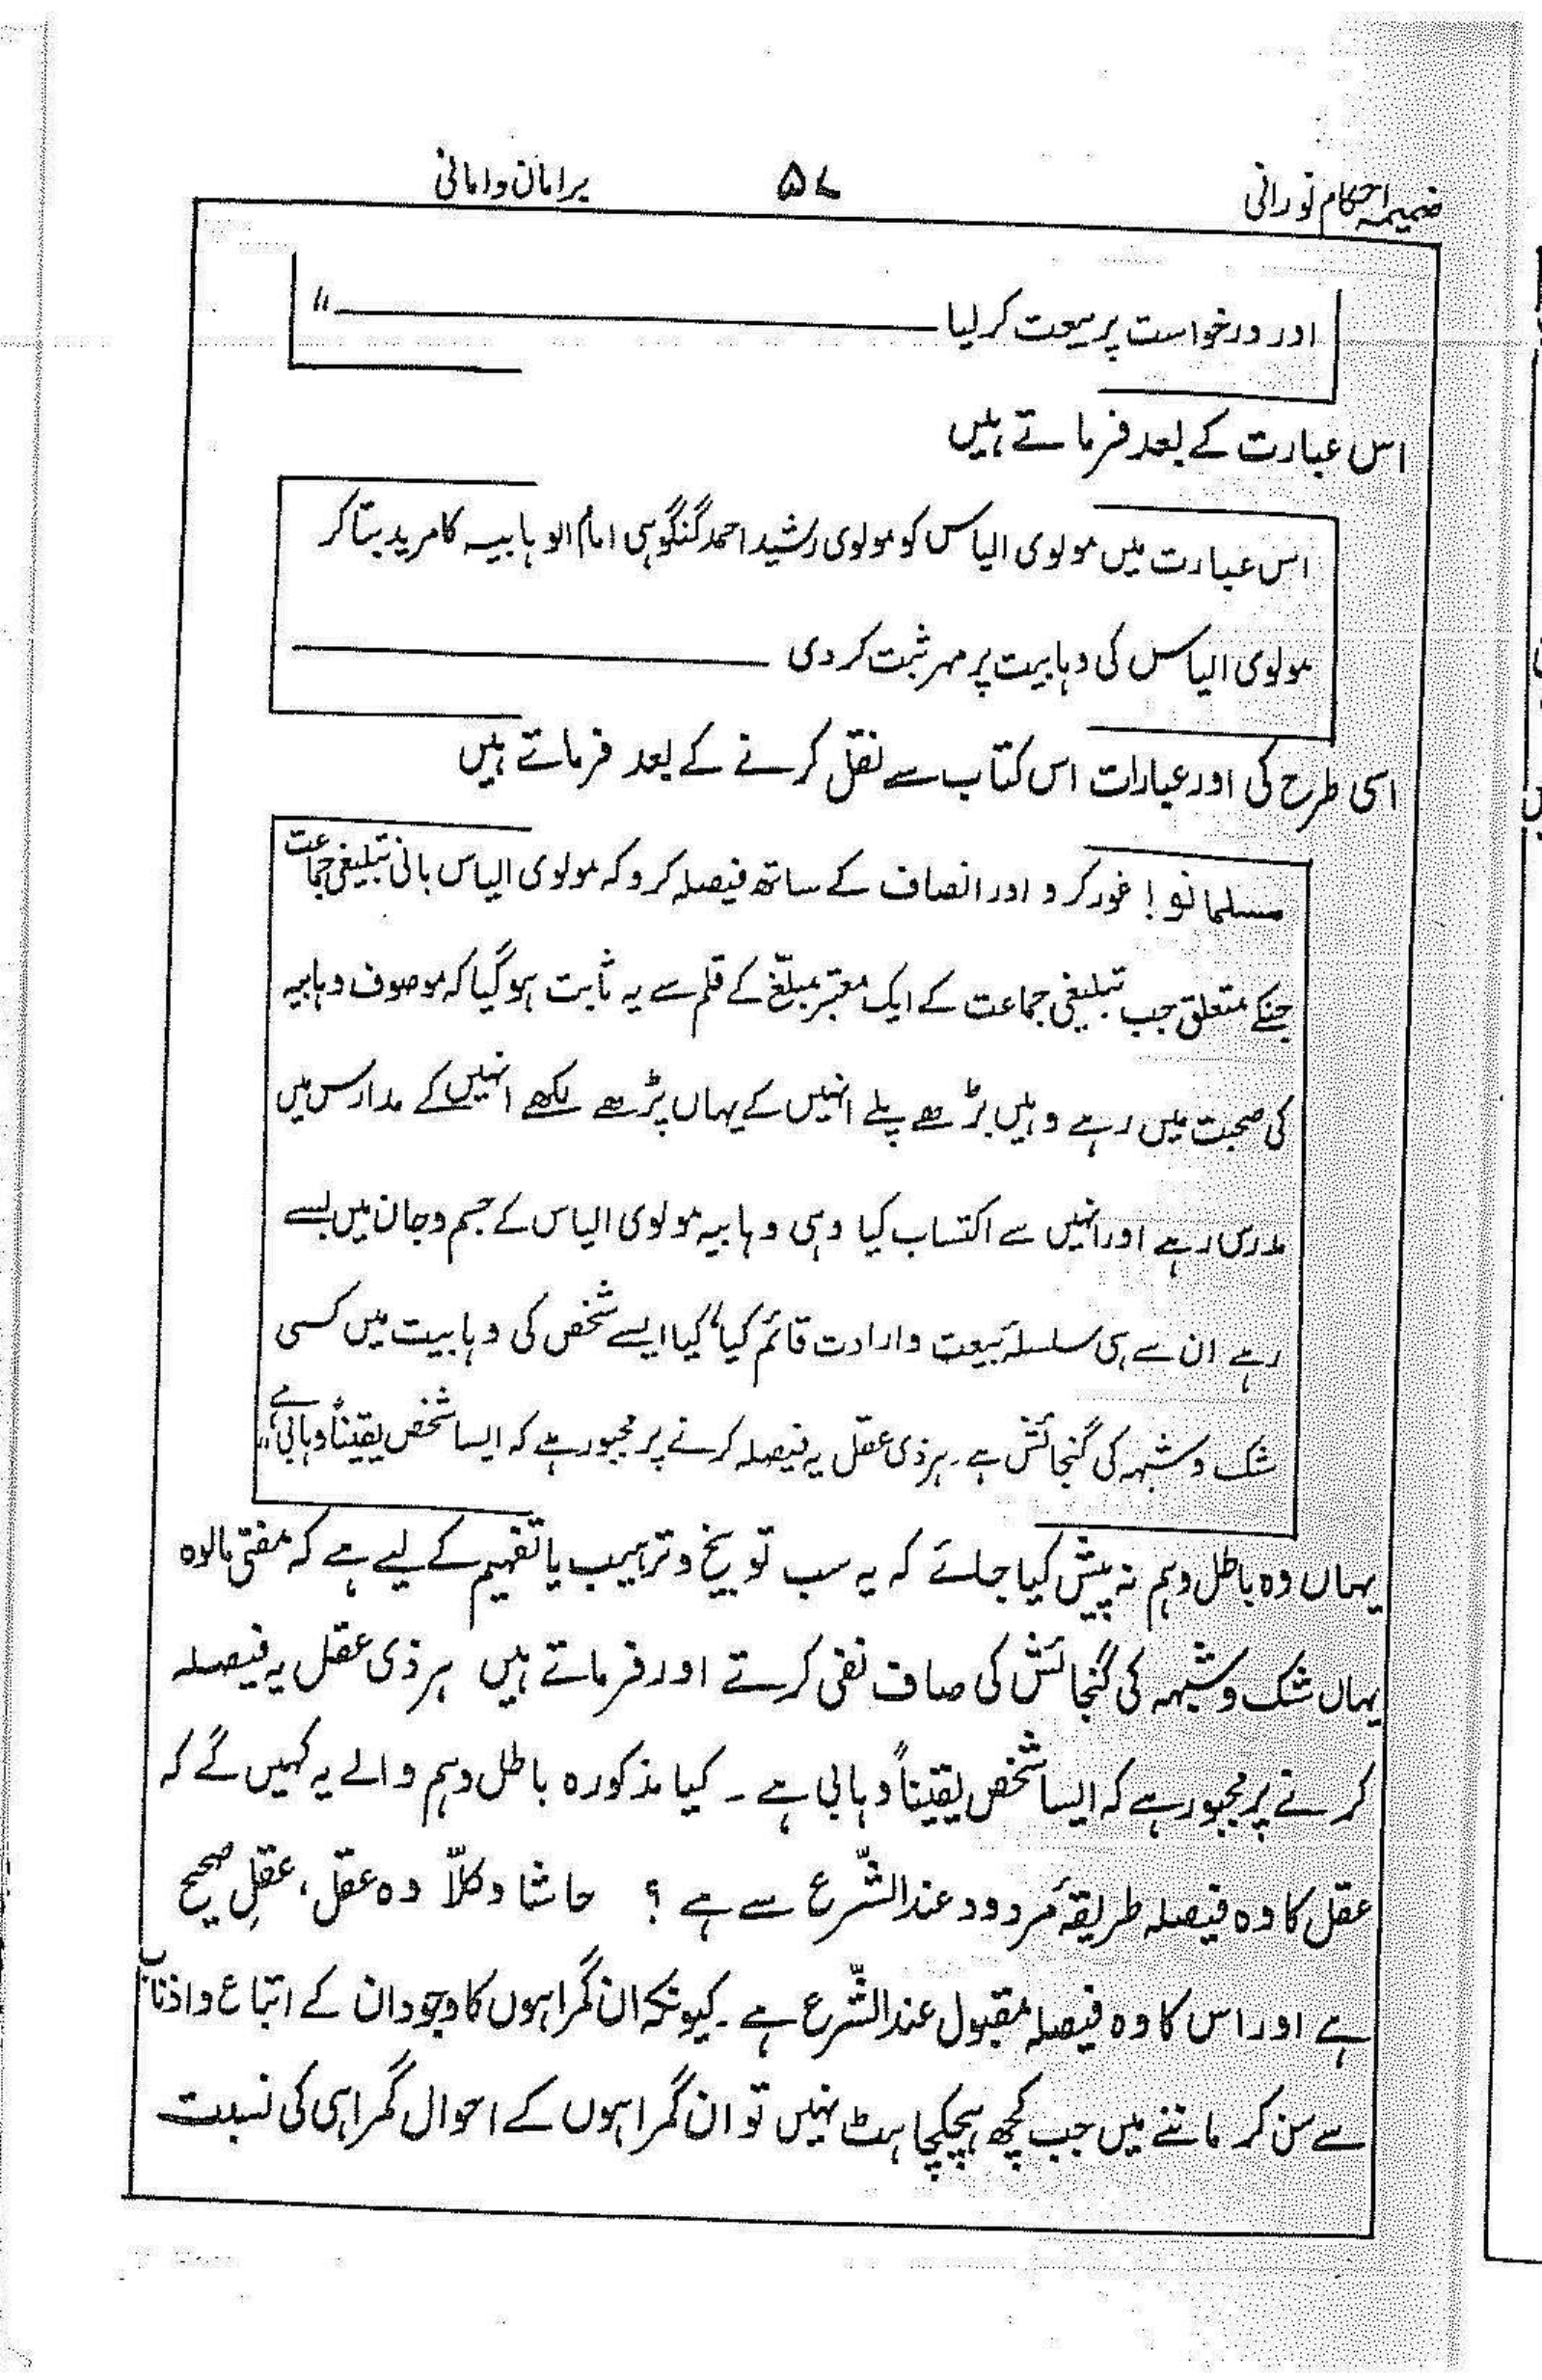 ضمیمہ احکام نورانی ۵۷ برامان وامانی
اور درخواست پر بیعت کر لیا ــــــــــــ "
اس عبارت کے بعد فرماتے ہیں
اس عبارت میں مولوی الیاس کو مولوی رشید احمد گنگوہی امام الوہابیہ کا مرید بتا کر
مولوی الیاس کی وہابیت پر مہر ثبت کر دی ــــــــــــ
اسی طرح کی اور عبارات اس کتاب سے نقل کرنے کے بعد فرماتے ہیں
مسلمانو! غور کرو اور انصاف کے ساتھ فیصلہ کرو کہ مولوی الیاس بانی تبلیغی جماعت
جنکے متعلق جب تبلیغی جماعت کے ایک معتبر مبلّغ کے قلم سے یہ ثابت ہو گیا کہ موصوف وہابیہ
کی صحبت میں رہے وہیں بڑھے پلے انہیں کے یہاں پڑھے لکھے انہیں کے مدارس میں
مدرس رہے اور انہیں سے اکتساب کیا وہی وہابیہ مولوی الیاس کے جسم و جان میں بسے
رہے ان سے ہی سلسلۂ بیعت و ارادت قائم کیا" کیا ایسے شخص کی وہابیت میں کسی
شک و شبہہ کی گنجائش ہے۔ ہر ذی عقل یہ فیصلہ کرنے پر مجبور ہے کہ ایسا شخص یقیناً وہابی ہے"
یہاں وہ باطل وہم نہ پیش کیا جائے کہ یہ سب توبیخ و ترہیب یا تفہیم کے لیے ہے کہ مفتی مالوہ
یہاں شک و شبہہ کی گنجائش کی صاف نفی کرتے اور فرماتے ہیں ہر ذی عقل یہ فیصلہ
کرنے پر مجبور ہے کہ ایسا شخص یقیناً وہابی ہے ۔ کیا مذکورہ باطل وہم والے یہ کہیں گے کہ
عقل کا وہ فیصلہ طریقۂ مردود عند الشّرع سے ہے ؟ حاشا و کلّا وہ عقل، عقلِ صحیح
ہے اور اس کا وہ فیصلہ مقبول عند الشّرع ہے ۔ کیونکہ ان گمراہوں کا وجود ان کے اتباع و اذناب
سے سن کر ماننے میں جب کچھ ہچکچاہٹ نہیں تو ان گمراہوں کے احوال گمراہی کی نسبت